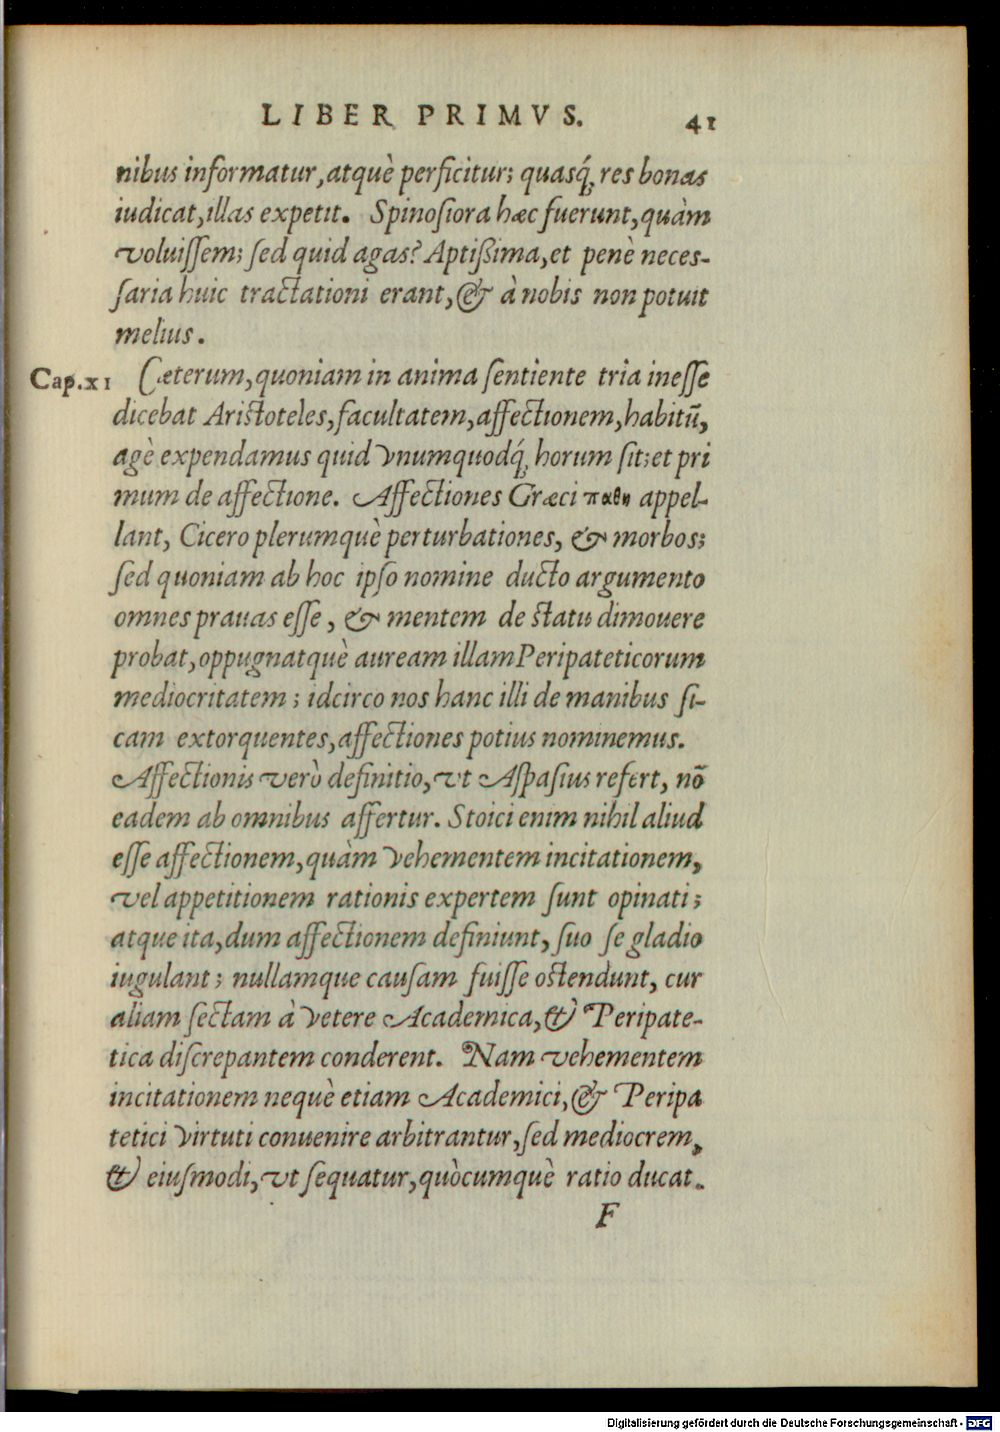 LIBER PRIMVS. 41
nibus informatur, atquè perficitur; quasq́; res bonas
iudicat, illas expetit. Spinosiora hæc fuerunt, quàm
voluissem; sed quid agas? Aptißima, et penè neces-
saria huic tractationi erant, & à nobis non potuit
melius.
Cap.xI Cæterum, quoniam in anima sentiente tria inesse
dicebat Aristoteles, facultatem, affectionem, habitū,
agè expendamus quid vnumquodq́; horum sit; et pri
mum de affectione. Affectiones Græci παθη appel-
lant, Cicero plerumquè perturbationes, & morbos;
sed quoniam ab hoc ipso nomine ducto argumento
omnes prauas esse, & mentem de statu dimouere
probat, oppugnatquè auream illam Peripateticorum
mediocritatem; idcirco nos hanc illi de manibus si-
cam extorquentes, affectiones potius nominemus.
Affectionis verò definitio, vt Aspasius refert, nō
eadem ab omnibus affertur. Stoici enim nihil aliud
esse affectionem, quàm vehementem incitationem,
vel appetitionem rationis expertem sunt opinati;
atque ita, dum affectionem definiunt, suo se gladio
iugulant; nullamque causam fuisse ostendunt, cur
aliam sectam à vetere Academica, & Peripate-
tica discrepantem conderent. Nam vehementem
incitationem nequè etiam Academici, & Peripa
tetici virtuti conuenire arbitrantur, sed mediocrem,
& eiusmodi, vt sequatur, quòcumquè ratio ducat.
F
Digitalisierung gefördert durch die Deutsche Forschungsgemeinschaft - DFG